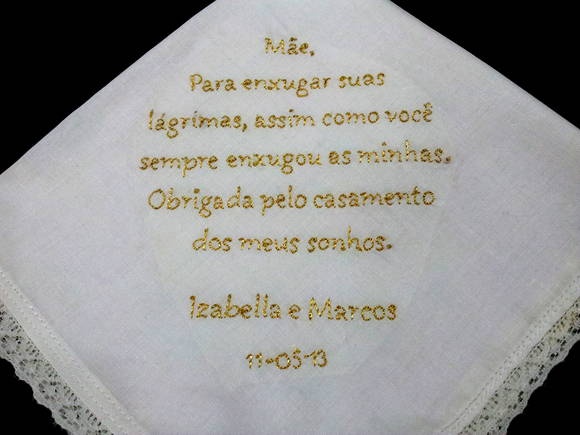 Mãe,
Para enxugar suas
lágrimas, assim como você
sempre enxugou as minhas.
Obrigada pelo casamento
dos meus sonhos.
Izabella e Marcos
11-05-13